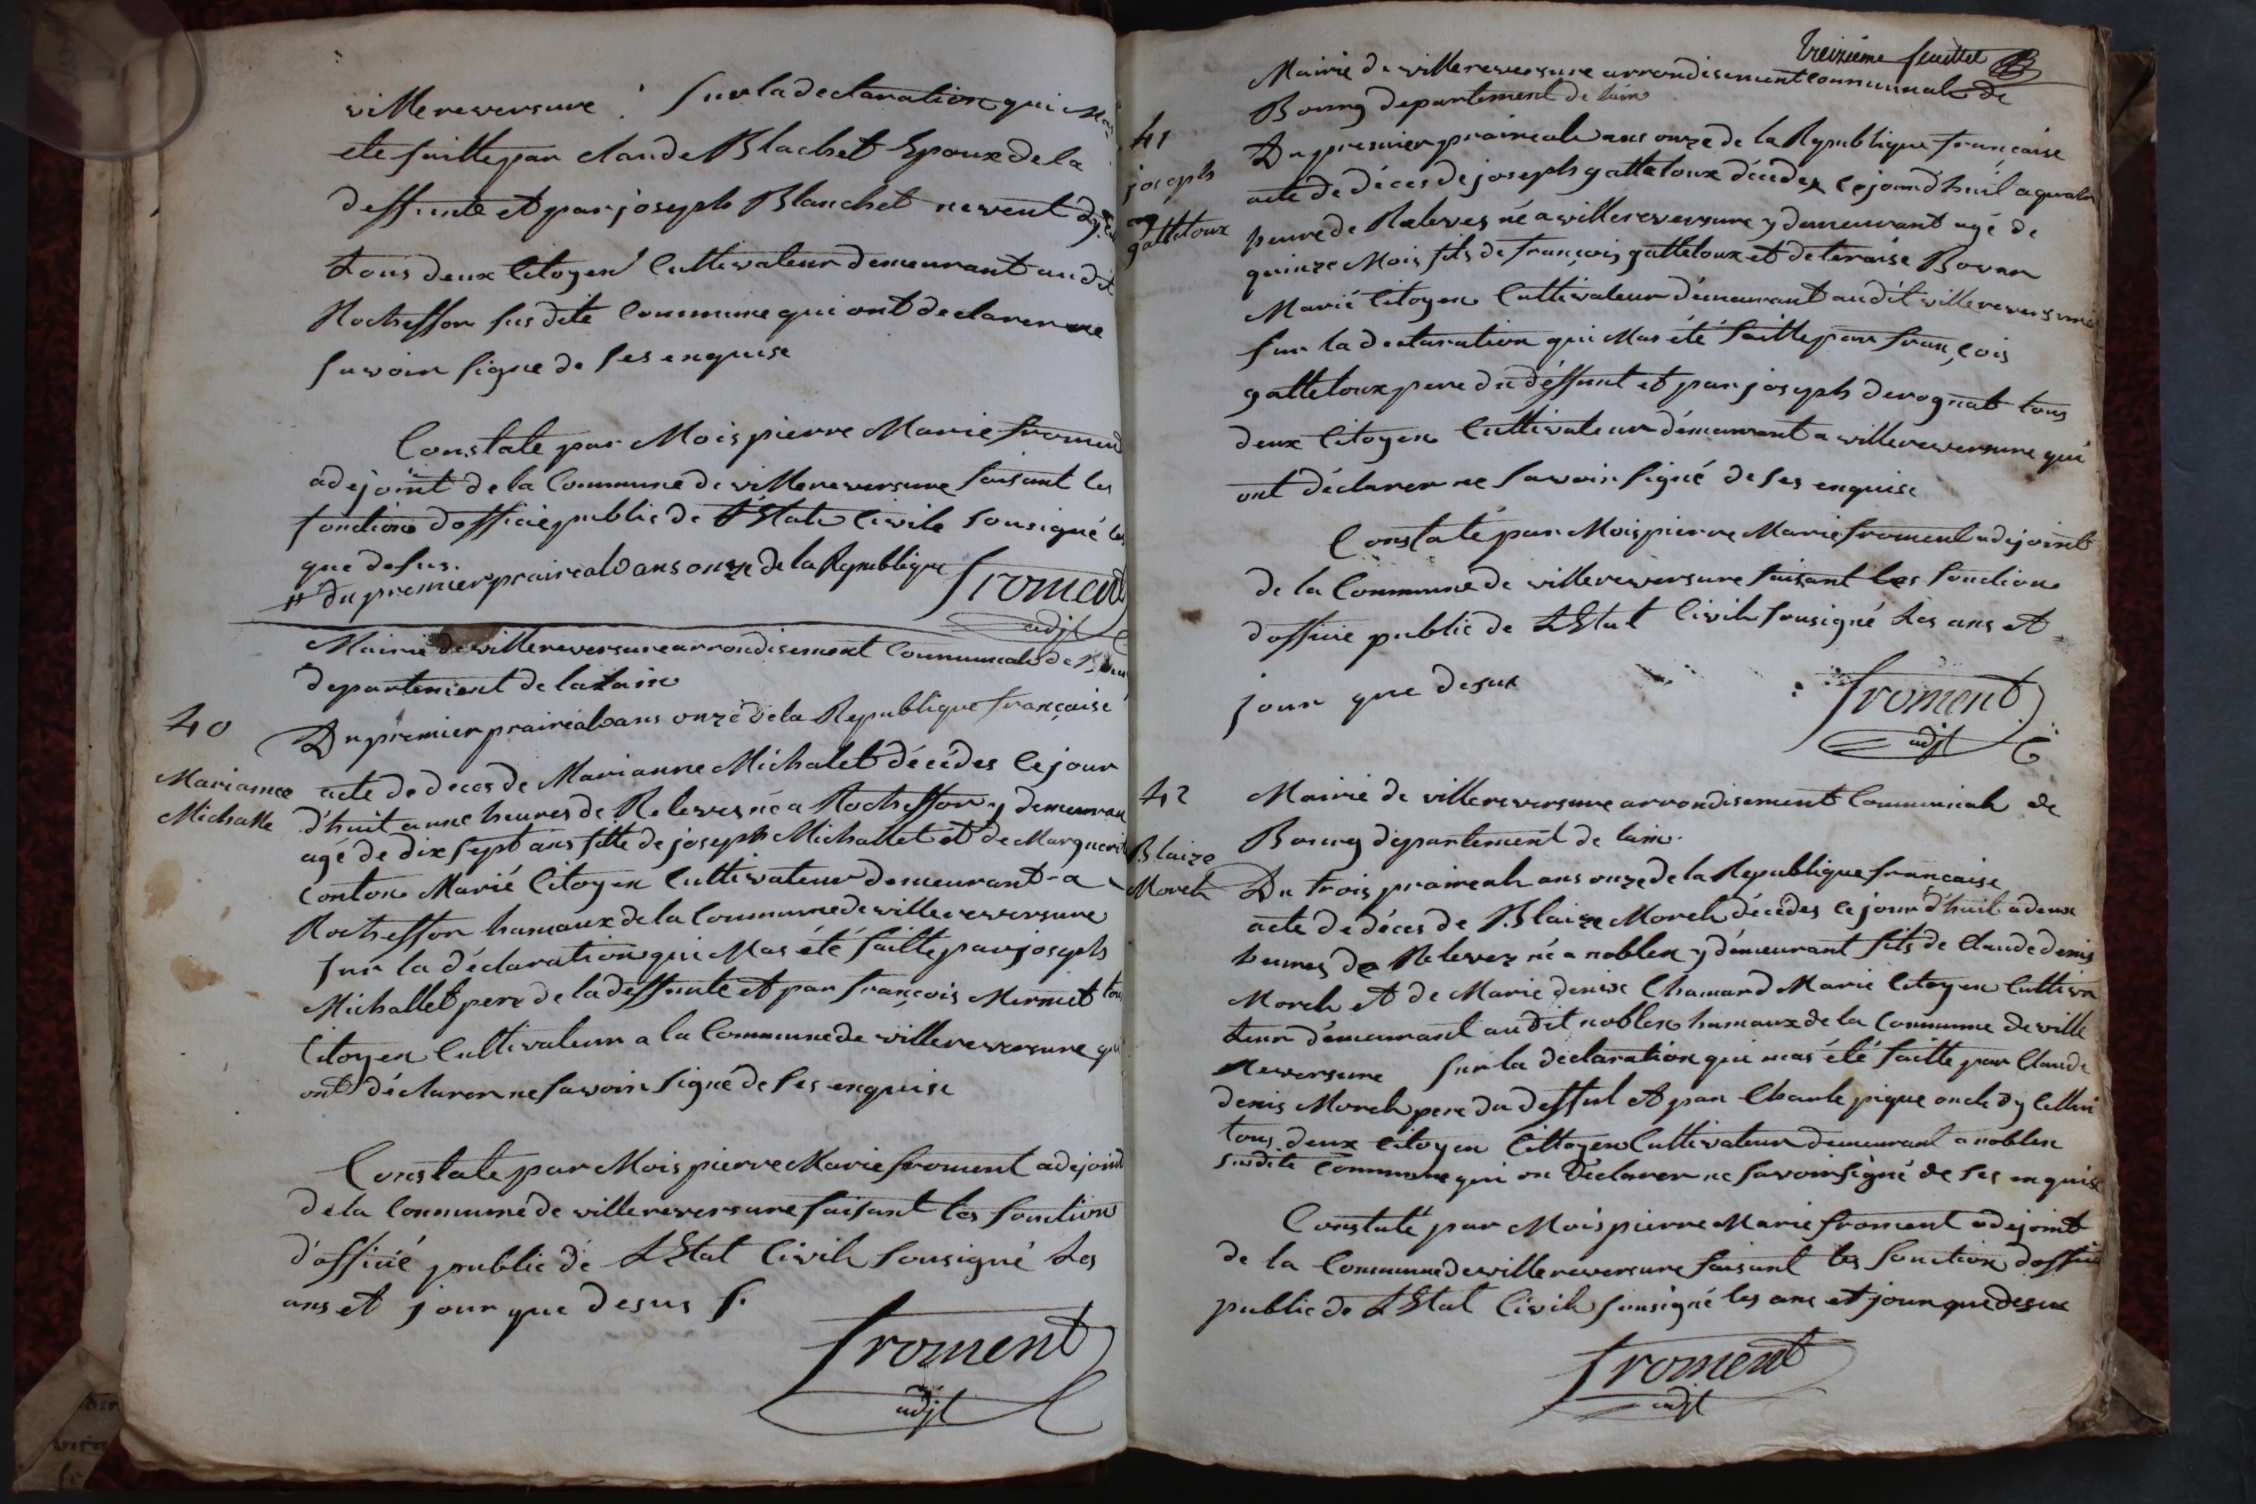 villereversure . Sur la declaration qui
ete faitte par claude Blachet Epoux de la
deffunte et par joseph Blanchet neveut
tous deux Citoyen Cultivateur demeurant au dit
Rocheffon susdite Commune qui ont declarer ne
savoir signe de ses enquise
Constate par Mois pierre Marie froment
adejoint de la Commune de villereversure faisant les
fonctions d'officie public de L'Etat Civile sousigné les
que desus.
# Du premier prairéal ans onze de la Republique
froment
adjt
Mairie de villereversure arrondisement Communal de
departement de la lain
40
Du premier prairéal ans onze de la Republique française
Marianne
Michalle
acte de deces de Marianne Michalet décédes Cejour
d'huit a une heures de Releves né a Rocheffon y demeuran
agé de dix sept ans fille de joseph Michallet et de Marguerit
Conton Marié Citoyen Cultivateur demeurant a
Rocheffon hamaux de la Commune de villereversure
sur la déclaration qui Mas été faitte par joseph
Michallet pere de la deffunte et par françois Mermet tou
Citoyen Cultivateur a la Commune de villereversure qu
ont déclarer ne savoir signé de ses enquise
Constate par Mois pierre Marie froment adejoint
de la Commune de villereversure faisant les fonction
d'officié public de L'Etat Civile sousigné Les
ans et jour que desus
froment
adjt
treizième feuillet
Mairie de villereversure arrondisement communale de
Bourg departement de lain
41
joseph
gatteloux
Du premier prairéale ans onze de la Republique française
acte de déces de joseph gatteloux décédez cejourd'huit a quatre
heure de Releves né a villereversure y demeurant agé de
quinze Mois fils de françois gatteloux et de teraise Bovar
Marié Citoyen Cultivateur démeurant audit villereversure
sur la declaration qui Mas été faitte par françois
gatteloux pere du déffunt et par joseph derognat tous
deux Citoyen Cultivateur démeurant a villereversure qui
ont déclarer ne savoir signé de ses enquise
Constaté par Mois pierre Marie froment adejoint
de la Commune de villereversure faisant les fonction
d'officie public de L'Etat Civile sousigné Les ans et
jour que desux
froment
adjt
42
Mairie de villereversure arrondisement Communiale de
Bourg departement de lain.
Blaize
Morel
Du trois praireale ans onze de la Republique française
acte de déces de Blaize Morele décédes cejourd'huit a deux
heures de Relevez né a noblen y démeurant fils de Claude denis
Morele et de Marie denise Chamard Marie Citoyen Cultiva
teur démeurant audit noblen hamaux de la Commune de ville
reversure Sur la declaration qui mas été faitte par Claude
denis Morele pere du deffut et par Charle pique oncle
tous deux citoyen Cittoyen Cultivateur demeurant a noblen
susdite Commune qui on déclarer ne savoir signé de ses enquise
Constaté par Mois pierre Marie froment adejoint
de la Commune de villereversure faisant les fonction d'officie
public de L'Etat Civile sousigné les ans et jour que desux
froment
adjt